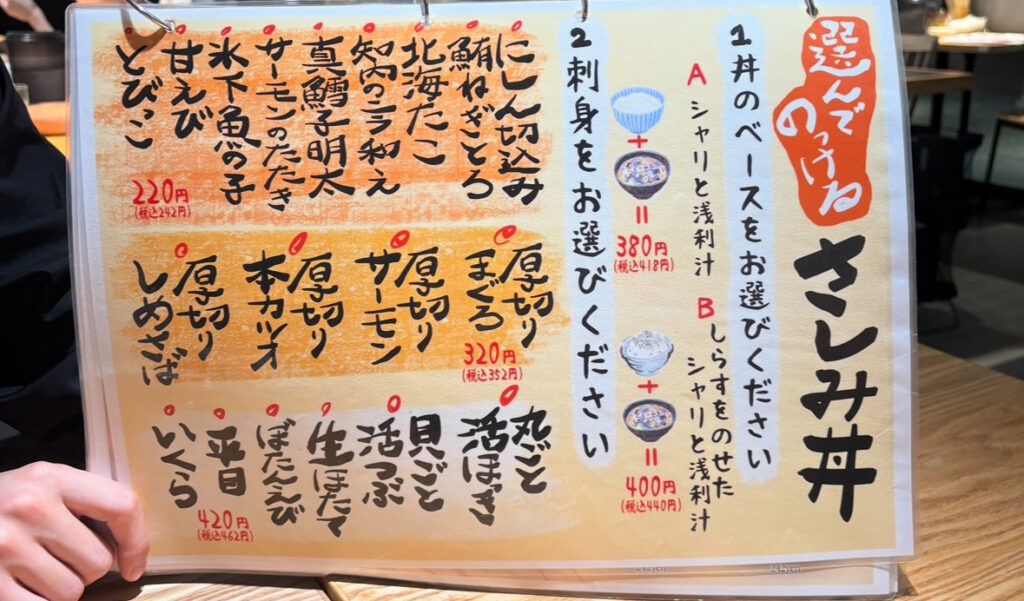 選んで
のっける
さしみ丼
1 丼のベースをお選びください
A シャリと浅利汁
380円
(税込418円)
B しらすをのせた
シャリと浅利汁
400円
(税込440円)
2 刺身をお選びください
にしん切込み
鮪ねぎとろ
北海たこ
知内ニラ和え
真鱈子明太
サーモンのたたき
氷下魚の子
甘えび
とびっこ
220円
(税込242円)
厚切り
まぐろ
厚切り
サーモン
厚切り
本カツオ
厚切り
しめさば
320円
(税込352円)
丸ごと
活ほっき
貝ごと
活つぶ
生ほたて
ぼたんえび
平目
いくら
420円
(税込462円)